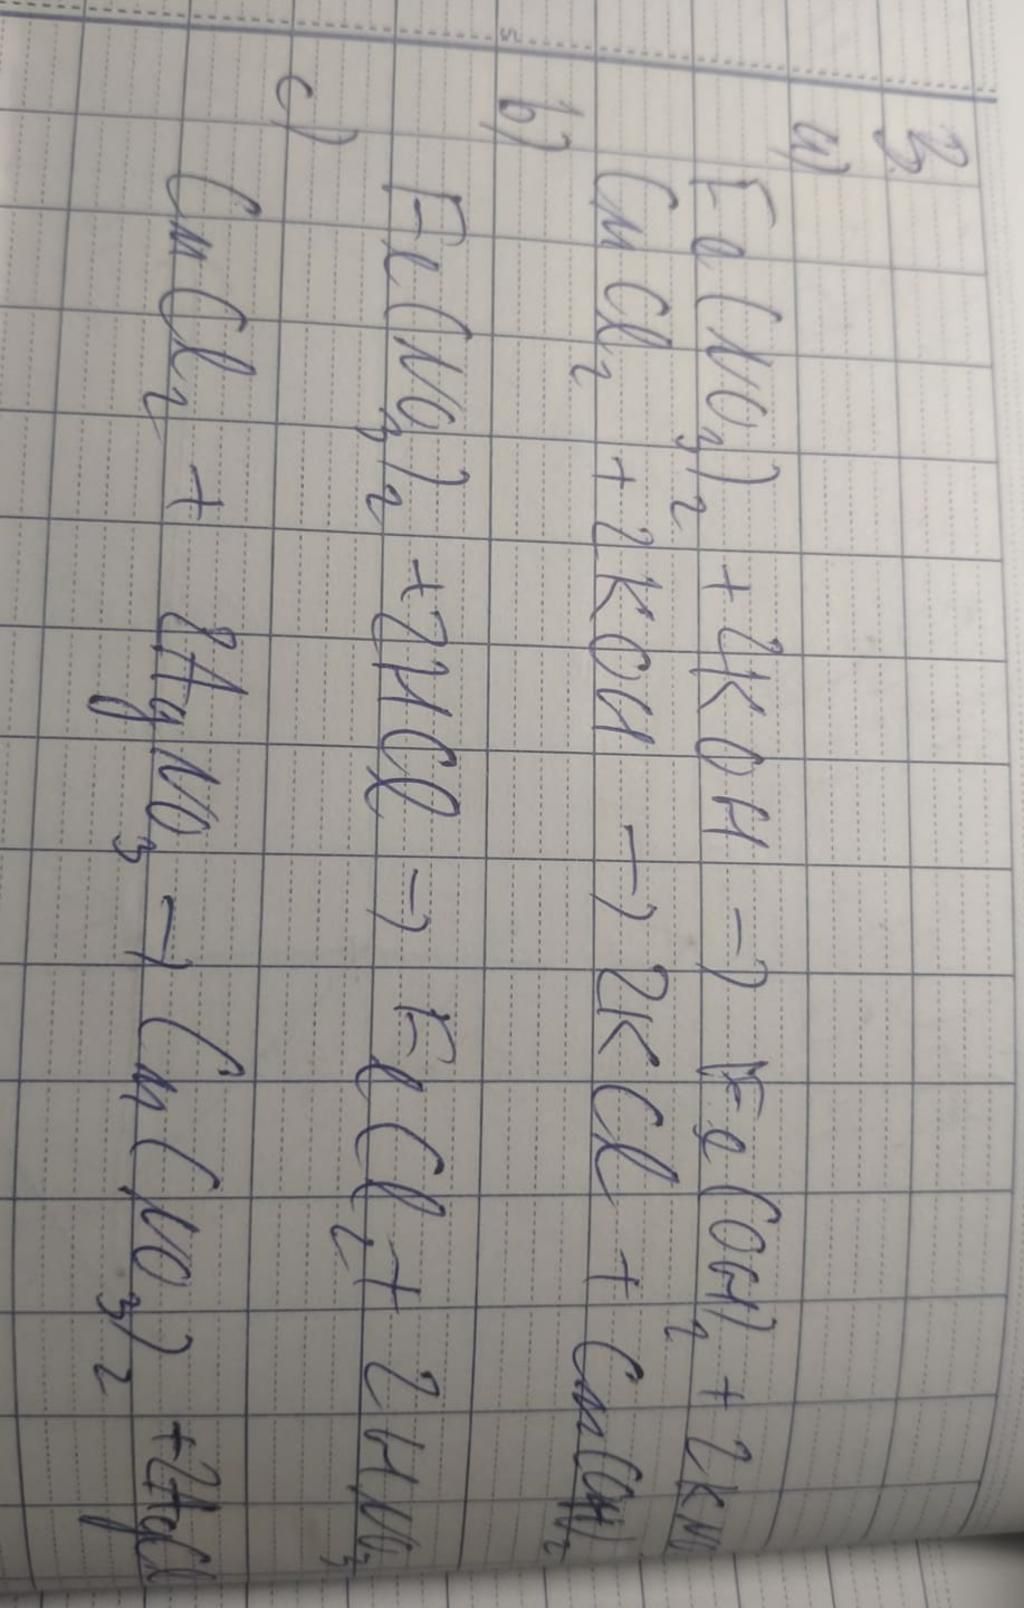 3
a)
Fe(NO3)2 + 2KOH → Fe(OH)2 + 2KNO
CuCl2 + 2KOH → 2KCl + Cu(OH)2
b)
Fe(NO3)2 + 2HCl → FeCl2 + 2HNO3
c)
CuCl2 + 2AgNO3 → Cu(NO3)2 + 2AgCl